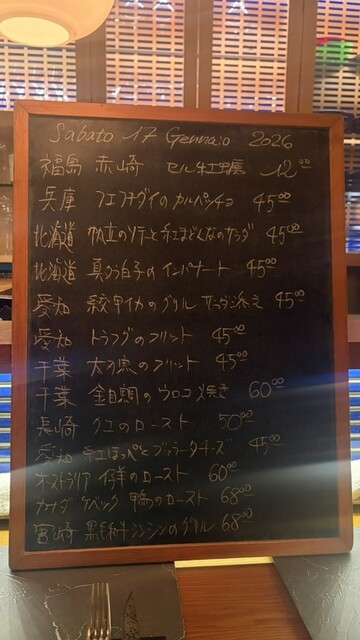 Sabato 17 Gennaio 2026
福島 赤崎 セル牡蠣 12⁰⁰
兵庫 フエフキダイのカルパッチョ 45⁰⁰
北海道 帆立のソテーと紅まどんなのサラダ 45⁰⁰
北海道 真タラ白子のインパナート 45⁰⁰
愛知 紋甲イカのグリル サラダ添え 45⁰⁰
愛知 トラフグのフリット 45⁰⁰
千葉 太刀魚のフリット 45⁰⁰
千葉 金目鯛のウロコ焼き 60⁰⁰
長崎 クエのロースト 50⁰⁰
愛知 紅ほっぺとブッラータチーズ 45⁰⁰
オーストラリア 仔羊のロースト 60⁰⁰
カナダ ケベック 鴨のロースト 68⁰⁰
宮崎 黒毛和牛シンシンのグリル 68⁰⁰